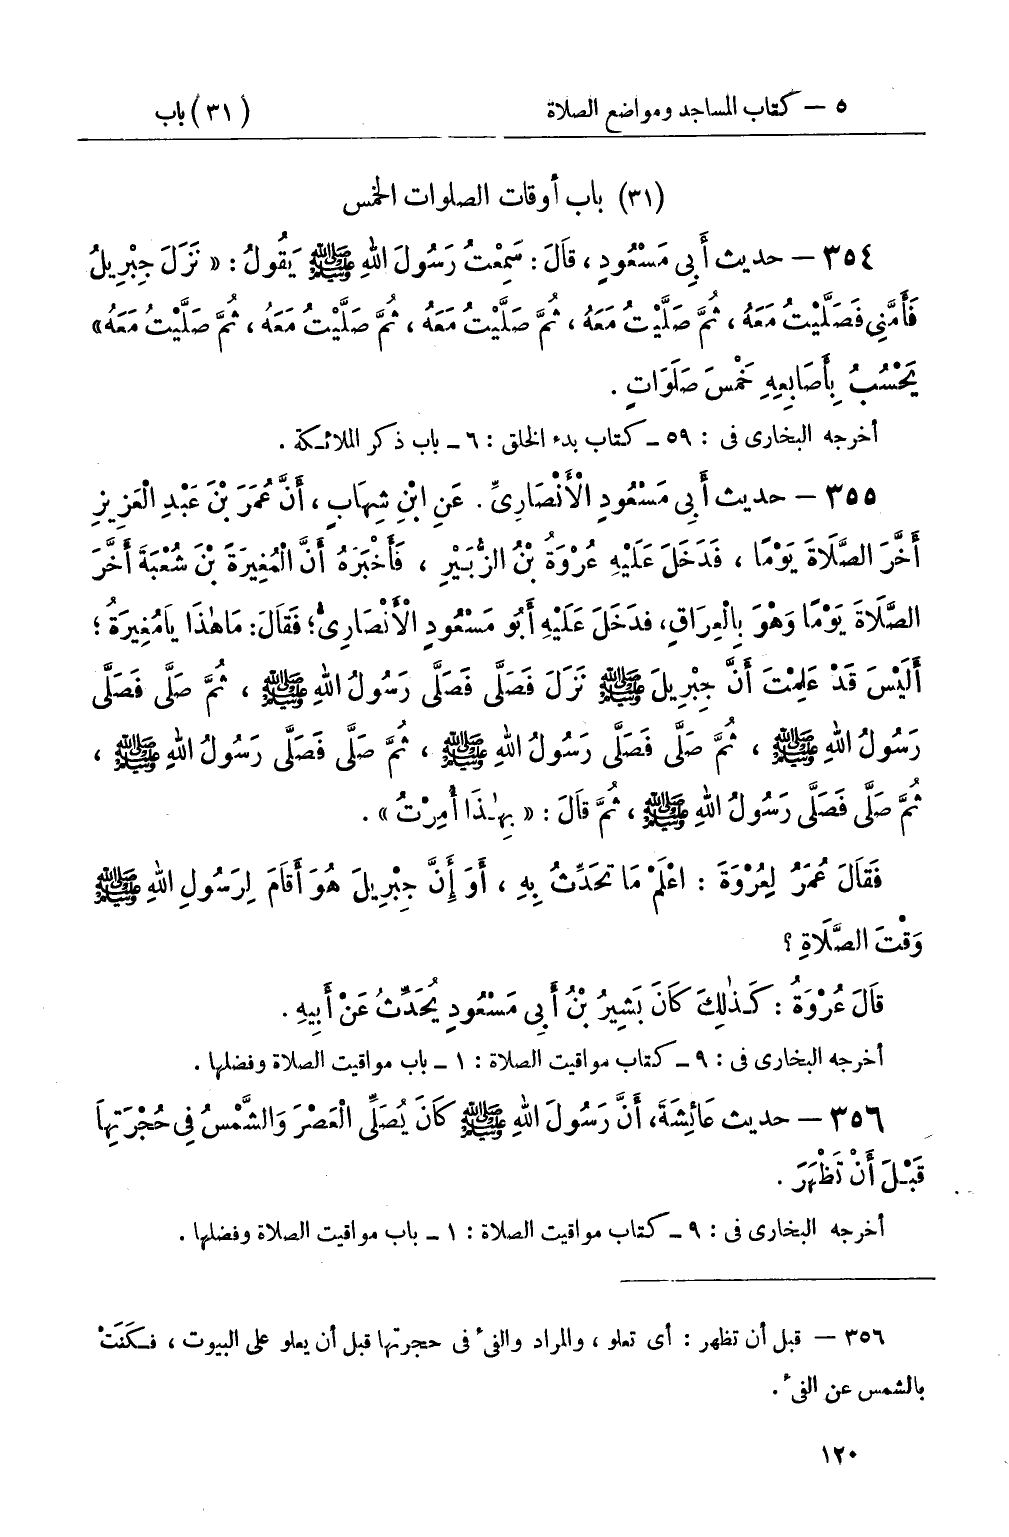 ٥ – كتاب المساجد ومواضع الصلاة (٣١) باب
(٣١) باب أوقات الصلوات الخمس
٣٥٤ – حديث أَبِي مَسْعُودٍ ، قَالَ : سَمِعْتُ رَسُولَ اللهِ ﷺ يَقُولُ : « نَزَلَ جِبْرِيلُ
فَأَمَّنِي فَصَلَّيْتُ مَعَهُ ، ثُمَّ صَلَّيْتُ مَعَهُ ، ثُمَّ صَلَّيْتُ مَعَهُ ، ثُمَّ صَلَّيْتُ مَعَهُ ، ثُمَّ صَلَّيْتُ مَعَهُ»
يَحْسُبُ بِأَصَابِعِهِ خَمْسَ صَلَوَاتٍ .
أخرجه البخارى فى : ٥٩ ـ كتاب بدء الخلق : ٦ ـ باب ذكر الملائكة .
٣٥٥ – حديث أَبِي مَسْعُودٍ الْأَنْصَارِيِّ . عَنِ ابْنِ شِهَابٍ ، أَنَّ عُمَرَ بْنَ عَبْدِ الْعَزِيزِ
أَخَّرَ الصَّلَاةَ يَوْمًا ، فَدَخَلَ عَلَيْهِ عُرْوَةُ بْنُ الزُّبَيْرِ ، فَأَخْبَرَهُ أَنَّ الْمُغِيرَةَ بْنَ شُعْبَةَ أَخَّرَ
الصَّلَاةَ يَوْمًا وَهْوَ بِالْعِرَاقِ، فدَخَلَ عَلَيْهِ أَبُو مَسْعُودٍ الْأَنْصَارِىُّ؛ فَقَالَ: مَا هٰذَا يَامُغِيرَةُ ؛
أَلَيْسَ قَدْ عَلِمْتَ أَنَّ جِبْرِيلَ ﷺ نَزَلَ فَصَلَّى فَصَلَّى رَسُولُ اللهِ ﷺ ، ثُمَّ صَلَّى فَصَلَّى
رَسُولُ اللهِ ﷺ ، ثُمَّ صَلَّى فَصَلَّى رَسُولُ اللهِ ﷺ ، ثُمَّ صَلَّى فَصَلَّى رَسُولُ اللهِ ﷺ ،
ثُمَّ صَلَّى فَصَلَّى رَسُولُ اللهِ ﷺ ، ثُمَّ قَالَ : « بِهٰذَا أُمِرْتُ » .
فَقَالَ عُمَرُ لِعُرْوَةَ : اعْلَمْ مَا تحَدِّثُ بِهِ ، أَوَ إِنَّ جِبْرِيلَ هُوَ أَقَامَ لِرَسُولِ اللهِ ﷺ
وَقْتَ الصَّلَاةِ ؟
قَالَ عُرْوَةُ : كَذٰلِكَ كَانَ بَشِيرُ بْنُ أَبِي مَسْعُودٍ يُحَدِّثُ عَنْ أَبِيهِ .
أخرجه البخارى فى : ٩ ـ كتاب مواقيت الصلاة : ١ ـ باب مواقيت الصلاة وفضلها .
٣٥٦ – حديث عَائِشَةَ، أَنَّ رَسُولَ اللهِ ﷺ كَانَ يُصَلِّى الْعَصْرَ وَالشَّمْسُ فِي حُجْرَتِهاَ
قَبْلَ أَنْ تَظْهَرَ .
أخرجه البخارى فى : ٩ ـ كتاب مواقيت الصلاة : ١ ـ باب مواقيت الصلاة وفضلها .
٣٥٦ – قبل أن تظهر : أى تعلو ، والمراد والفىء فى حجرتها قبل أن يعلو على البيوت ، فكَنَتْ
بالشمس عن الفىء .
١٢٠